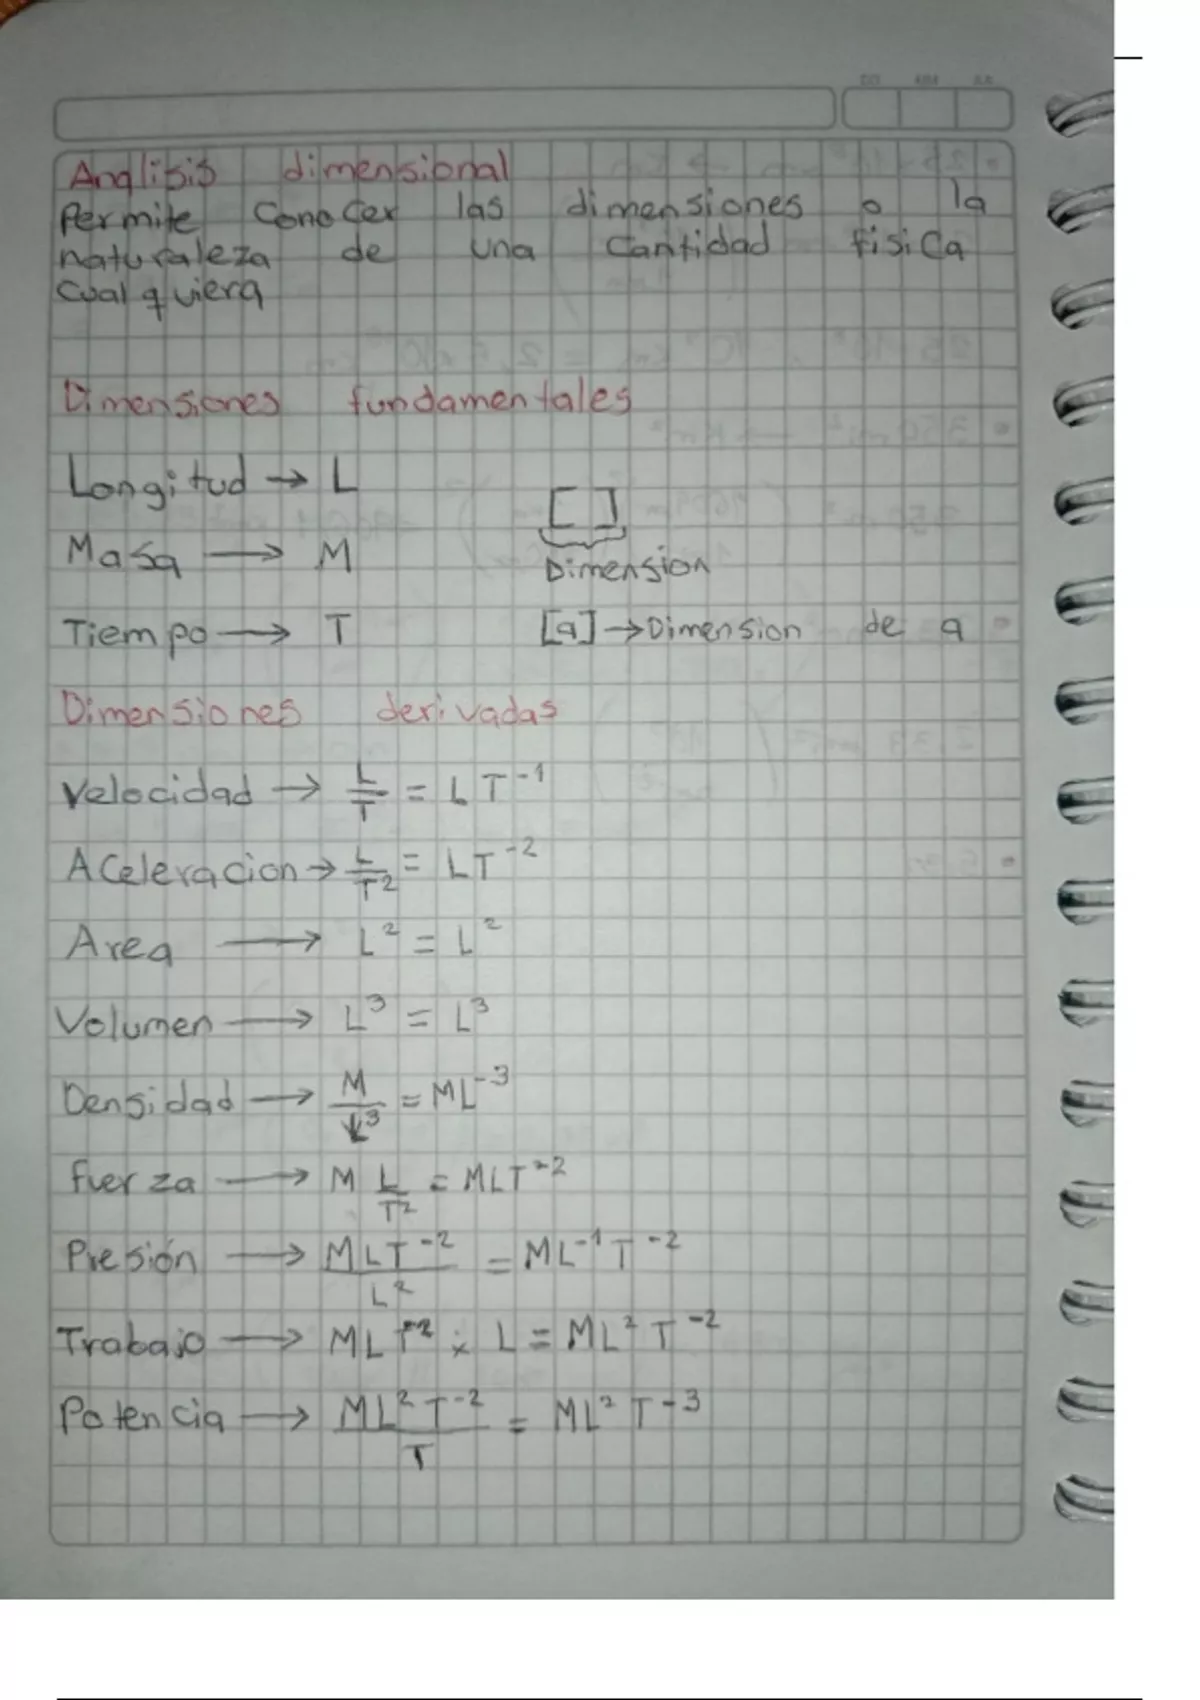 Analisis dimensional
Permite Conocer las dimensiones o la
naturaleza de una Cantidad fisica
Cualquiera
Dimensiones fundamentales
Longitud → L
[ ]
Masa → M
Dimension
Tiempo → T
[a] → Dimension de a
Dimensiones derivadas
Velocidad → L/T = LT⁻¹
ACeleracion → L/T² = LT⁻²
Area → L² = L²
Volumen → L³ = L³
Densidad → M/L³ = ML⁻³
fuerza → M L/T² = MLT⁻²
Presión → MLT⁻²/L² = ML⁻¹T⁻²
Trabajo → MLT⁻² × L = ML²T⁻²
Potencia → ML²T⁻²/T = ML²T⁻³